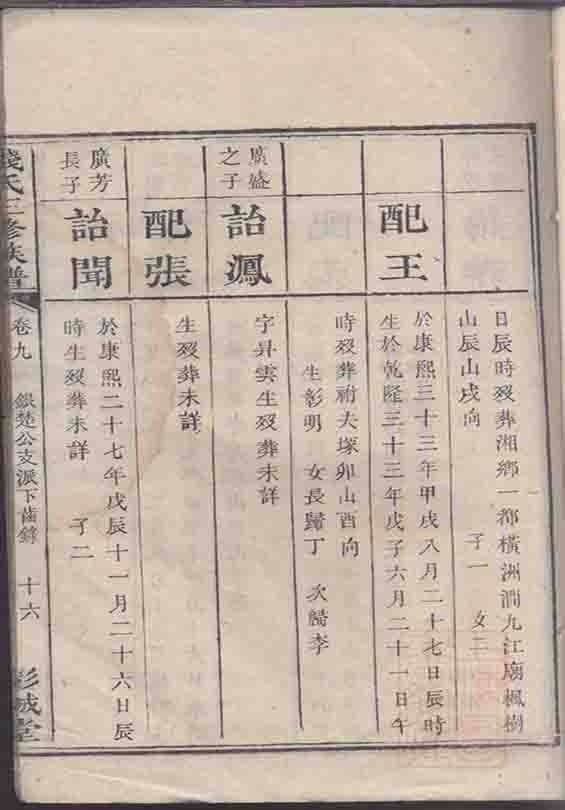 日辰時歿葬湘鄉一都橫洲澗九江廟楓樹
山辰山戌向 子一 女二
配王
於康熙三十三年甲戌八月二十七日辰時
生於乾隆三十三年戊子六月二十一日午
時歿葬祔夫塚卯山酉向
生彰明 女長歸丁 次歸李
廣盛
之子
詒鳳
字昇雲生歿葬未詳
配張
生歿葬未詳
廣芳
長子
詒聞
於康熙二十七年戊辰十一月二十六日辰
時生歿葬未詳 子二
錢氏三修族譜
卷九 銀楚公支派下齒錄 十六
彭城堂